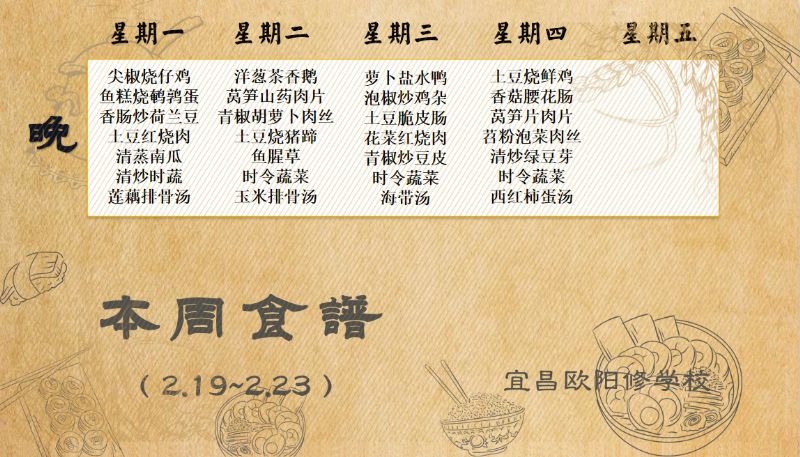 星期一 星期二 星期三 星期四 星期五
晚
尖椒烧仔鸡 洋葱茶香鹅 萝卜盐水鸭 土豆烧鲜鸡
鱼糕烧鹌鹑蛋 莴笋山药肉片 泡椒炒鸡杂 香菇腰花肠
香肠炒荷兰豆 青椒胡萝卜肉丝 土豆脆皮肠 莴笋片肉片
土豆红烧肉 土豆烧猪蹄 花菜红烧肉 苕粉泡菜肉丝
清蒸南瓜 鱼腥草 青椒炒豆皮 清炒绿豆芽
清炒时蔬 时令蔬菜 时令蔬菜 时令蔬菜
莲藕排骨汤 玉米排骨汤 海带汤 西红柿蛋汤
本周食譜
(2.19~2.23)
宜昌欧阳修学校